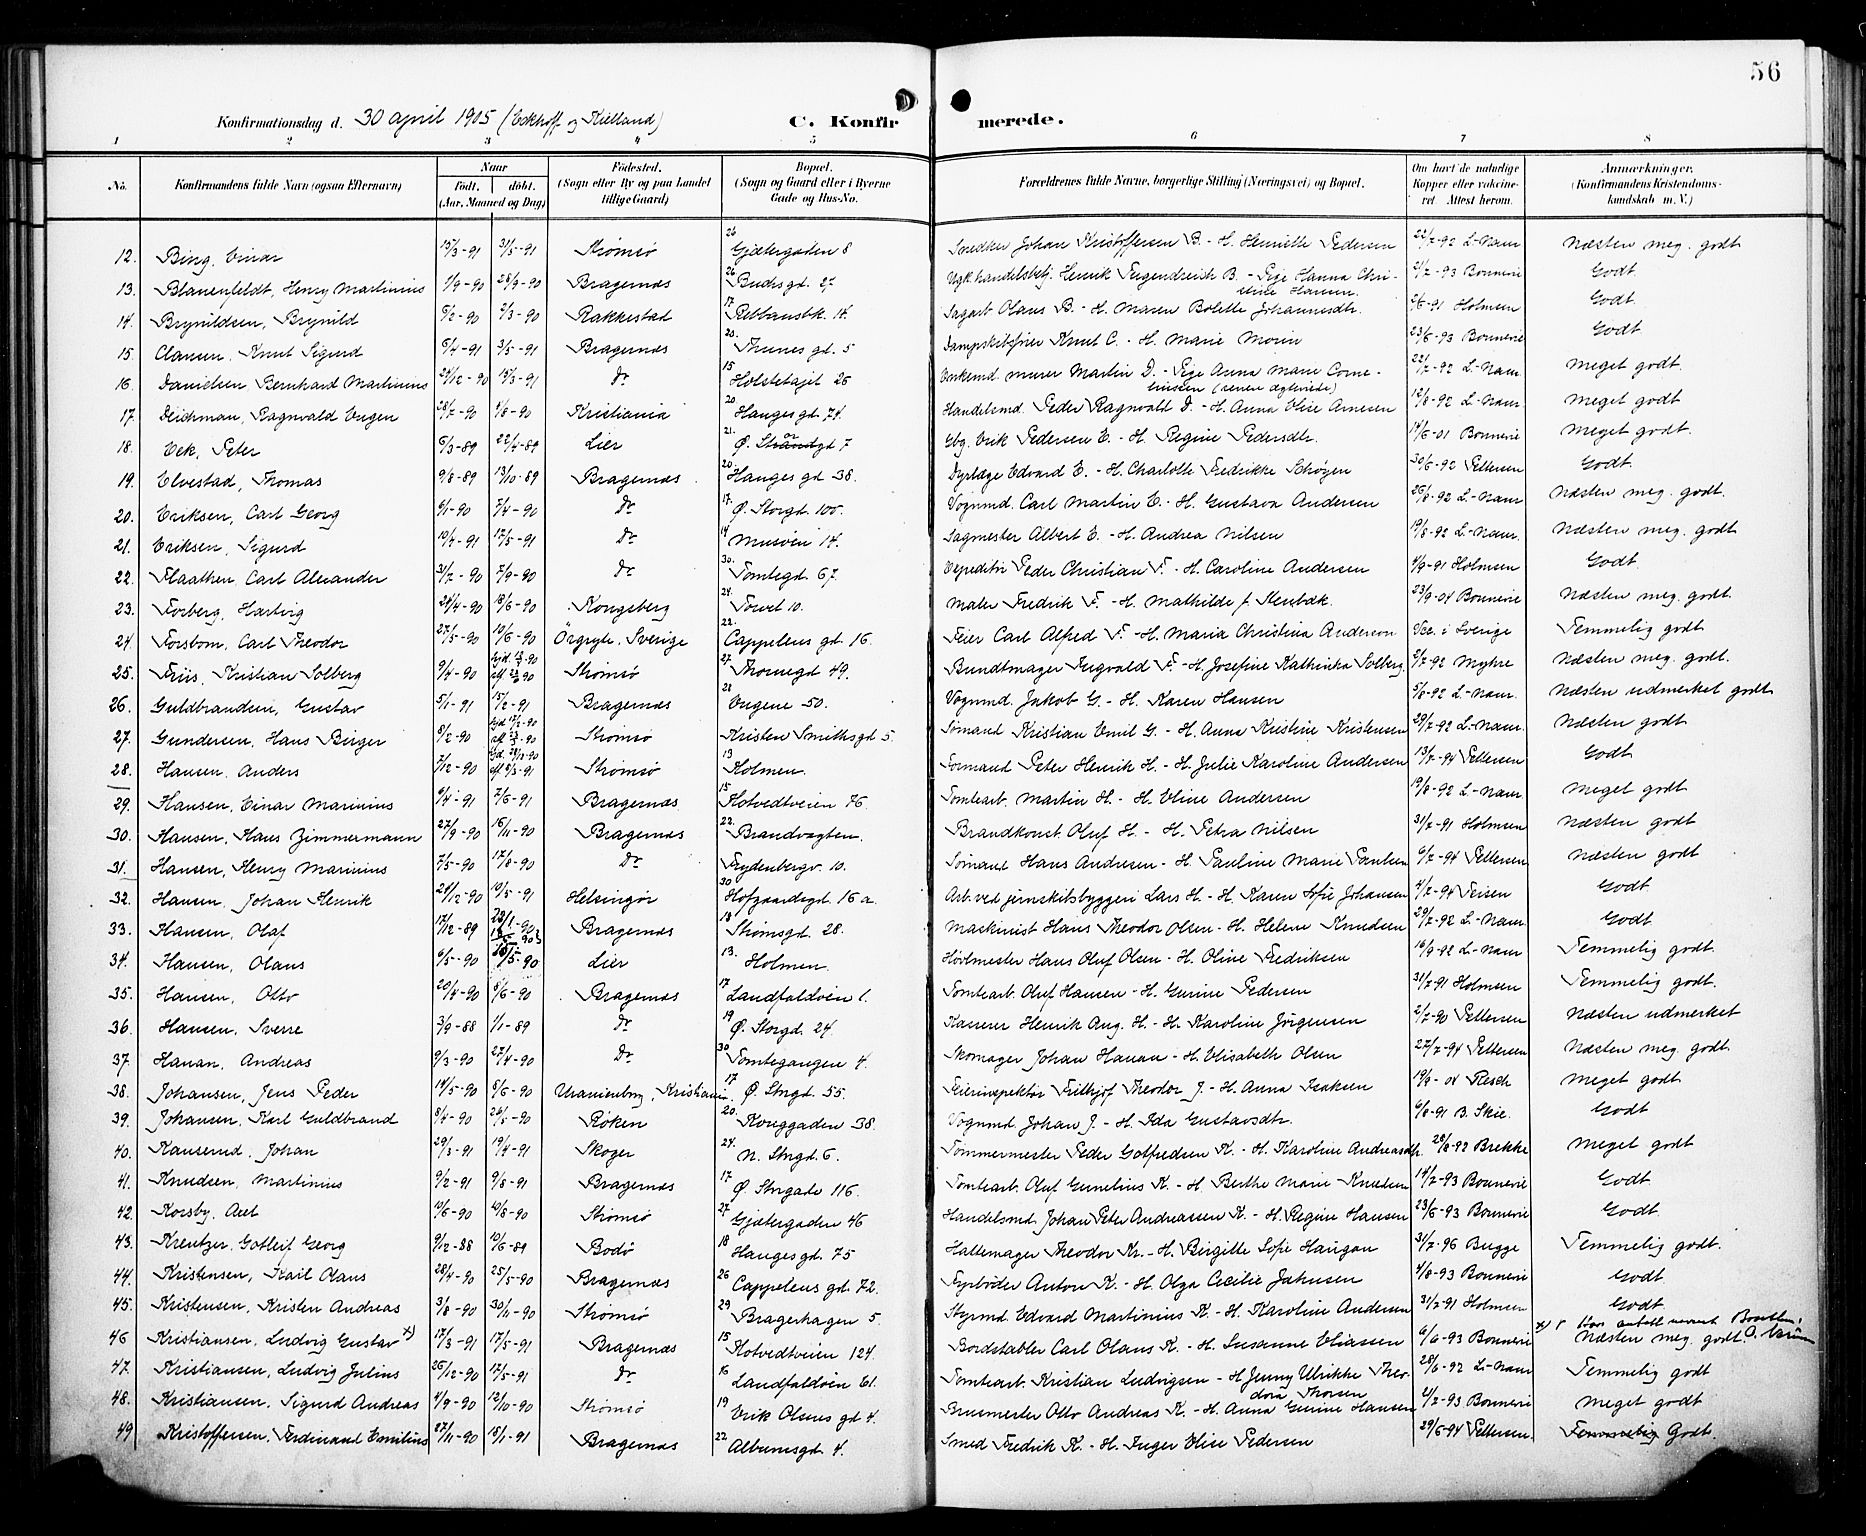 56
Konfirmationsdag d. 30 april 1905 (Eckhoff og Kielland) C. Konfirmerede.
1 2 3 4 5 6 7 8
No. Konfirmandens fulde Navn (ogsaa Efternavn) Naar født. døbt. (Aar, Maaned og Dag) Fødested. (Sogn eller By og paa Landet tillige Gaard) Bopæl. (Sogn og Gaard eller i Byerne Gade og Hus-No. Forældrenes fulde Navne, borgerlige Stilling (Næringsvei) og Bopæl. Om havt de naturlige Kopper eller vakcineret. Attest herom. Anmærkninger. (Konfirmandens Kristendomskundskab m. V.)
12. Bing, Einar 15/3-91 31/5-91 Strømsø 26 Gjætergaden 8 Snedker Johan Kristoffersen B. - H. Henriette Pedersen 22/7-92 L-Naur Næsten meg. godt
13. Blauenfeldt, Henry Martinius 1/9-90 28/9-90 Bragernæs 26 Buchs gd. 27 Henrik B - Pige Hanna Christine Hansen 2/7-93 Bonnevie Godt
14. Brynildsen, Brynild 5/2-90 2/3-90 Rakkestad 17 Rebbansbk. 14 Sagarb. Olaus B. - H. Maren Bolette Johannesdtr. 2/6-91 Holmsen Godt
15. Clausen, Knut Sigurd 6/4-91 3/5-91 Bragernæs 20. Thunes gd. 5 Dampskibsfører Knut C. - H. Marie Moen 23/6-93 Bonnevie Godt
16. Danielsen, Bernhard Martinius 24/12-90 19/3-91 Do 15 Holstetajet 26 Enkemd. murer Martin D. - Pige Anna Marie Corneliussen (senere ægteviede) 22/7-92 L-Naur Meget godt.
17. Dickman, Ragnvald Eugen 28/7-90 4/8-90 Kristiania 20 Hauges gd. 74. Handelsmd. Peder Ragnvald D. - H. Anna Elise Arnesen 12/8-92 L-Naur Meget godt
18. Eek, Peter 5/3-89 22/4-89 Lier 21. Ø. Strandgt 7 Gbg. Erik Pedersen E. - H. Regine Pedersdtr. 14/6-01 Bonnevie Meget godt.
19. Elvestad, Thomas 9/8-89 13/10-89 Bragernæs 20 Hauges gd 38. Dyrlæge Edvard E. - H. Charlotte Fredrikke Schøyen 30/6-92 Pettersen Godt.
20. Eriksen, Carl Georg 6/1-90 7/4-90 Do 17. Ø. Storgd. 100. Vognmd. Carl Martin E. - H. Gustava Andersen 26/8-92 L-Naur Næsten meg. godt.
21. Eriksen, Sigurd 10/4-91 17/5-91 Do 14 Musøen 14. Sagmester Albert E. - H. Andrea Nilsen 19/8-92 L-Naur. Næsten meg. godt
22. Flaathen, Carl Alexander 31/7-90 7/9-90 Do 30. Tomtegd. 67. Expeditør Peder Christian F. - H. Caroline Andersen 4/9-91 Holmsen Godt
23. Forberg, Hartvig 24/4-90 18/6-90 Kongsberg 24. Torvet 10. Maler Fredrik F. - H. Mathilde f. Stenbæk. 23/9-04 Bonnevie Næsten meg. godt.
24. Forsbom, Carl Theodor 27/5-90 10/6-90 Örgryte, Sverige 22. Cappelens gd. 16. Feier Carl Alfred F. - H. Maria Christina Anderson Vac. i Sverige Temmelig godt
25. Friis, Kristian Solberg 9/4-90 Strømsø 27 Thornegd 49. Bundtmager Ingvald F. - H. Josefine Kathinka Solberg 2/7-92 Myhre Næsten meg. godt.
26. Guldbrandsen, Gustav 5/1-91 15/2-91 Bragernæs 21 Engene 50. Vognmd. Jakob G. - H. Karen Hansen 5/8-92 L-Naur. Næsten udmerket godt
27. Gundersen, Hans Birger 8/2-90 Strømsø Kristen Smithsgd 5. Sømand Kristian Emil G. - H. Anna Kristine Kristensen 29/7-92 L-Naur. Næsten godt
28. Hansen, Anders 7/12-90 Strømsø 13 Holmen. Formand Peter Henrik H. - H. Julie Karoline Andersen 13/7-94 Pettersen Godt
29. Hansen, Einar Marinius 6/4-91 7/6-91 Bragernæs 15 Kotvedtveien 76. Tomtearb. Martin H. - H. Eline Andersen 19/8-92 L-Naur. Meget godt
30. Hansen, Hans Zimmermann 27/9-90 16/11-90 Bragernæs 22. Brandvagten. Brandkonst. Oluf H. - H. Petra Nilsen 31/7-91 Holmsen Næsten godt
31. Hansen, Henry Marinius 7/5-90 17/8-90 Do Frydenbergv. 10. Sømand Hans Andresen - H. Pauline Marie Paulsen 6/7-94 Pettersen Næsten godt
32. Hansen, Johan Henrik 24/12-90 10/5-91 Helsingør 30 Hofgaardsgd. 16 a. Arb. ved jernskibsbyggeri Lars H. - H. Karen Sofie Johansen 4/7-94 Teisen Godt
33. Hansen, Olaf 17/12-89 Bragernæs 18 Strømsgd. 28. Maskinist Hans Theodor Olsen - H. Helene Knudsen 29/7-92 L-Naur. Godt
34. Hansen, Olaus 6/5-90 26/5-90 Lier 13. Holmen. Høvlmester Hans Oluf Olsen - H. Oline Fredriksen 16/9-92 L-Naur Temmelig godt
35. Hansen, Otto 20/4-90 8/6-90 Bragernæs 17 Landfaldøen 1. Tomtearb. Oluf Hansen - H. Gurine Pedersen 31/7-91 Holmsen Temmelig godt.
36. Hansen, Sverre 3/9-88 1/1-89 Do 19 Ø. Storgd. 24. Kasserer Henrik Aug. H. - H. Karoline Jørgensen 2/7-90 Pettersen Næsten udmerket
37. Hanan, Andreas 9/3-90 27/4-90 Do 30 Tomtegangen 4. Skomager Johan Hanan - H. Elisabeth Olsen 27/7-94 Pettersen Næsten meg. godt.
38. Johansen, Jens Peder 14/5-90 8/6-90 Uranienborg, Kristiania 17 Ø. Storgd. 55. Feierinspektør Fridtjof Theodor J. - H. Anna Isaksen 19/9-04 Resch Meget godt
39. Johansen, Karl Guldbrand 8/4-90 26/5-90 Røken 20. Konggaden 38. Vognmd. Johan J. - H. Ida Gustavsdtr. 6/8-91 B. Skie. Godt
40. Kanserud, Johan 29/3-91 19/4-91 Skoger 24. N. Storgd. 6. Tømmermester Peder Gotfredsen K. - H. Karoline Andreasdtr. 28/8-92 Brekke Meget godt
41. Knudsen, Martinius 9/2-91 9/8-91 Bragernæs 17 Ø. Storgade 116. Tomtearb. Oluf Gunelius K. - H. Berthe Marie Knudsen 14/7-93 Bonnevie Godt.
42. Korsby, Axel 10/6-90 10/8-90 Strømsø 27 Gjætergaden 46 Handelsmd. Johan Peter Andreassen K. - H. Regine Hansen 23/6-93 Bonnevie Godt.
43. Kreutzer, Gotleif Georg 9/12-88 10/6-89 Bodø 18 Hauges gd. 75 Hattemager Theodor Kr. - H. Birgitte Sofie Haugan 31/7-96 Bugge Temmelig godt.
44. Kristensen, Karl Olaus 28/4-90 25/5-90 Bragernæs 26 Cappelens gd. 72. Fyrbøder Anton K. - H. Olga Cecilie Jahnsen 4/8-93 Bonnevie Godt
45. Kristensen, Kristen Andreas 3/8-90 30/11-90 Strømsø 29 Bragerhagen 5. Styrmd. Edvard Martinius K. - H. Karoline Andersen 31/7-91 Holmsen Godt
46 Kristiansen, Ludvig Gustav x) 17/3-91 17/5-91 Bragernæs 15 Kotvedtveien 124. Bordstabler Carl Olaus K. - H. Susanne Eliassen 6/6-93 Bonnevie x) Har antatt navnet Næsten meg. godt.
47. Kristiansen, Ludvig Julius 26/12-90 17/5-91 Do 16 Landfaldøen 61. Tomtearb. Kristian Ludvigsen - H. Jenny Ulrikke Theodora Thorsen 28/6-92 L-Naur Temmelig godt
48. Kristiansen, Sigurd Andreas 4/9-90 12/10-90 Strømsø 19 Erik Olsens gd 4. Brusmester Otto Andreas K. - H. Anna Gurine Hansen 4/7-93 Bonnevie Meget godt
49 Kristoffersen, Ferdinand Emilius 27/11-90 18/1-91 Bragernæs 22 Albumsgd. 4. Smed Fredrik K. - H. Inger Elise Pedersen 29/6-94 Pettersen Temmelig Godt.